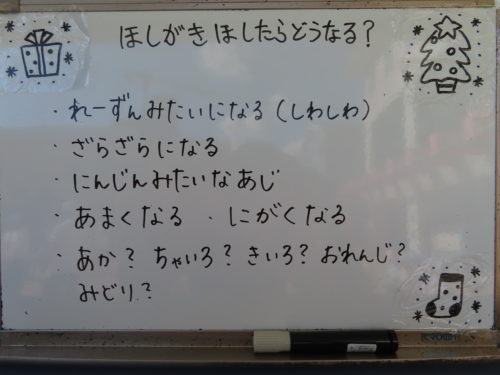 ほしがきほしたらどうなる？
・れーずんみたいになる（しわしわ）
・ざらざらになる
・にんじんみたいなあじ
・あまくなる ・にがくなる
・あか？ ちゃいろ？ きいろ？ おれんじ？
みどり？